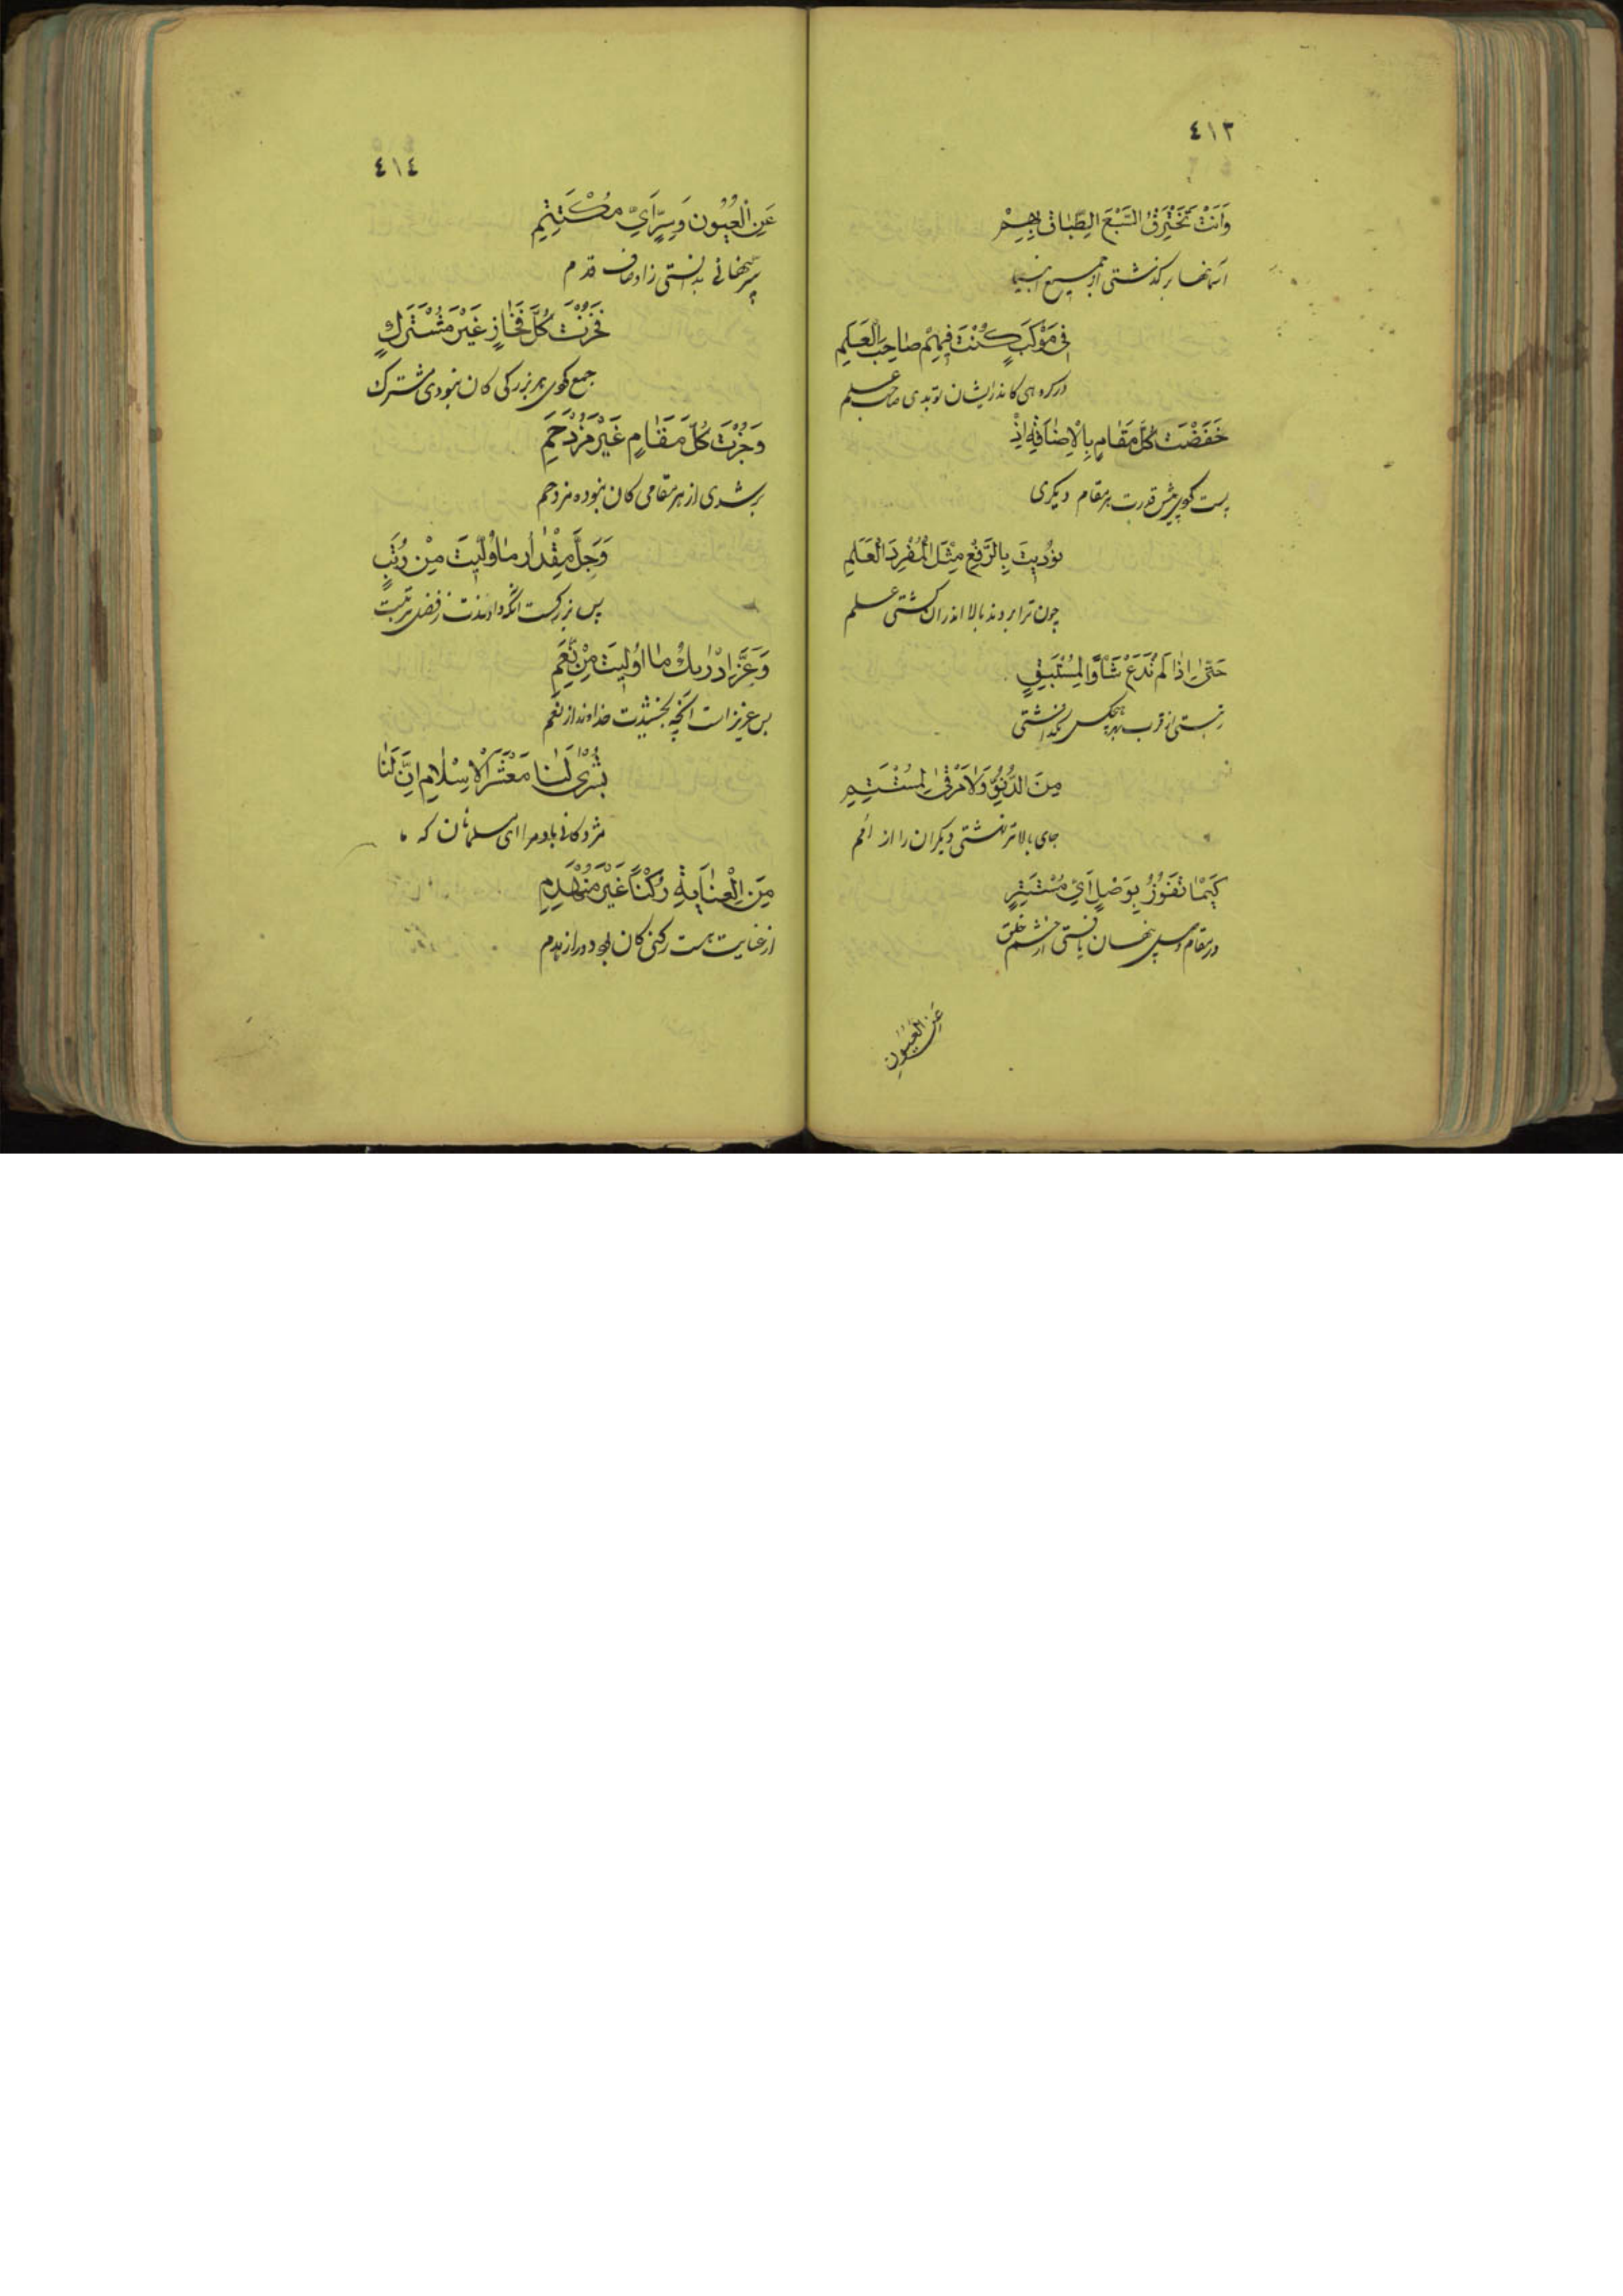 ٤١٣
وَاَنْتَ تَخْتَرِقُ السَّبْعَ الطِّبٰاقَ بِهِمْ
آسمانها برگذشتی از جمیع انبیا
فِی مَوْكَبٍ كُنْتَ فِيهِمْ صٰاحِبَ الْعَلَمِ
در گروهی کاندر ایشان تو بدی صاحب علم
خَفَضْتَ كُلَّ مَقٰامٍ بِالْاِضٰافَةِ اِذْ
پست کوی پیش قدرت بر مقام دیگری
نُودِيتَ بِالرَّفْعِ مِثْلَ الْمُفْرَدِ الْعَلَمِ
چون ترا بردند بالا اندران گشتی علم
حَتّٰى اِذٰا لَمْ تَدَعْ شَأْوًا لِمُسْتَبِقٍ
از قرب بهر هیچکس نگذاشتی
مِنَ الدُّنُوِّ وَلٰا مَرْقًى لِمُسْتَنِمِ
جای بالاتر نهشتی دیگران را از امم
كَيْمٰا تَفُوزُ بِوَصْلٍ اَيِّ مُسْتَتِرٍ
در مقام وصل پنهان یافتی از چشم خلق
عَنِ الْعُيُونِ
٤١٤
عَنِ الْعُيُونِ وَسِرٍّ اَيِّ مُكْتَتِمِ
سر پنهانی بدانستی ز اوصاف قدم
فَحُزْتَ كُلَّ فَخٰارٍ غَيْرَ مُشْتَرَكٍ
جمع کوی هر بزرگی کان نبودی مشترک
وَجُزْتَ كُلَّ مَقٰامٍ غَيْرَ مُزْدَحَمِ
بر شدی از هر مقامی کان نبوده مزدحم
وَجَلَّ مِقْدٰارُ مٰا وُلِّيتَ مِنْ رُتَبٍ
پس بزرگست آنکه دادندت ز فضل مرتبت
وَعَزَّ اِدْرٰاكُ مٰا اُولِيتَ مِنْ نِعَمِ
بس عزیز است آنچه بخشیدت خداوند از نعم
بُشْرٰى لَنٰا مَعْشَرَ الْاِسْلٰامِ اِنَّ لَنٰا
مژدگانی باد مرا ای مسلمانان که ما
مِنَ الْعِنٰايَةِ رُكْنًا غَيْرَ مُنْهَدِمِ
از عنایت هست رکنی کان بود دور از هدم